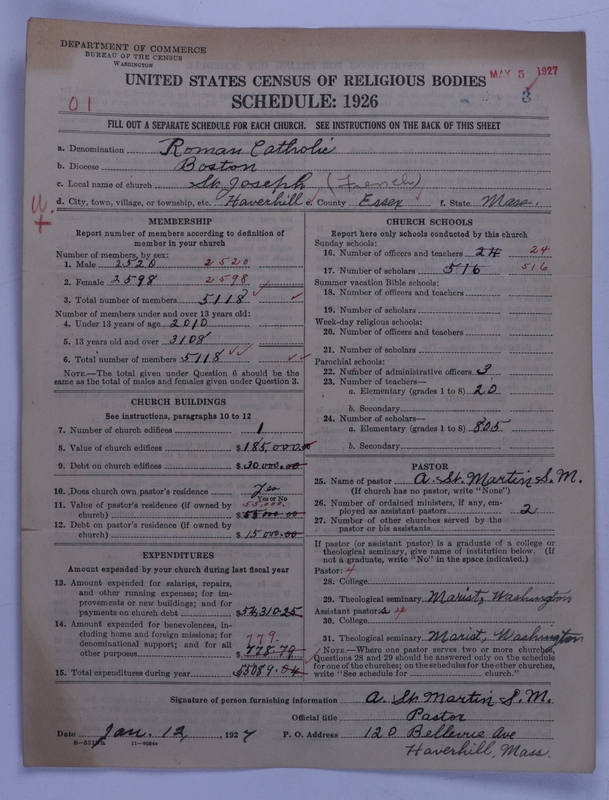 DEPARTMENT OF COMMERCE
BUREAU OF THE CENSUS
WASHINGTON
MAY 5 1927
UNITED STATES CENSUS OF RELIGIOUS BODIES
SCHEDULE: 1926
01
3
FILL OUT A SEPARATE SCHEDULE FOR EACH CHURCH. SEE INSTRUCTIONS ON THE BACK OF THIS SHEET
a. Denomination Roman Catholic
b. Diocese Boston
c. Local name of church St. Joseph (French)
d. City, town, village, or township, etc. Haverhill e. County Essex f. State Mass.
MEMBERSHIP
Report number of members according to definition of
member in your church
Number of members, by sex:
1. Male 2520 2520
2. Female 2598 2598
3. Total number of members 5118
Number of members under and over 13 years old:
4. Under 13 years of age 2010
5. 13 years old and over 3108
6. Total number of members 5118
NOTE.—The total given under Question 6 should be the
same as the total of males and females given under Question 3.
CHURCH BUILDINGS
See instructions, paragraphs 10 to 12
7. Number of church edifices 1
8. Value of church edifices $185,000.00
9. Debt on church edifices $30000.00
10. Does church own pastor's residence Yes
Yes or No
11. Value of pastor's residence (if owned by 55,000.
church) $55000.00
12. Debt on pastor's residence (if owned by
church) $15000.00
EXPENDITURES
Amount expended by your church during last fiscal year
13. Amount expended for salaries, repairs,
and other running expenses; for im-
provements or new buildings; and for
payments on church debt $54,310.25
14. Amount expended for benevolences, in-
cluding home and foreign missions; for
denominational support; and for all 779.
other purposes $778.79
15. Total expenditures during year $55089.04
CHURCH SCHOOLS
Report here only schools conducted by this church
Sunday schools:
16. Number of officers and teachers 24 24
17. Number of scholars 516 516
Summer vacation Bible schools:
18. Number of officers and teachers
19. Number of scholars
Week-day religious schools:
20. Number of officers and teachers
21. Number of scholars
Parochial schools:
22. Number of administrative officers 3
23. Number of teachers—
a. Elementary (grades 1 to 8) 20
b. Secondary
24. Number of scholars—
a. Elementary (grades 1 to 8) 805
b. Secondary
PASTOR
25. Name of pastor A. St. Martin S.M.
(If church has no pastor, write "None")
26. Number of ordained ministers, if any, em-
ployed as assistant pastors 2
27. Number of other churches served by the
pastor or his assistants
If pastor (or assistant pastor) is a graduate of a college or
theological seminary, give name of institution below. (If
not a graduate, write "No" in the space indicated.)
Pastor: 4
28. College
29. Theological seminary Marist, Washington
Assistant pastor: s 4
30. College
31. Theological seminary Marist, Washington
NOTE.—Where one pastor serves two or more churches,
Questions 28 and 29 should be answered only on the schedule
for one of the churches; on the schedules for the other churches,
write "See schedule for church."
Signature of person furnishing information A. St. Martin S.M.
Official title Pastor
Date Jan. 12, 1927 P. O. Address 120 Bellevue Ave
Haverhill, Mass.